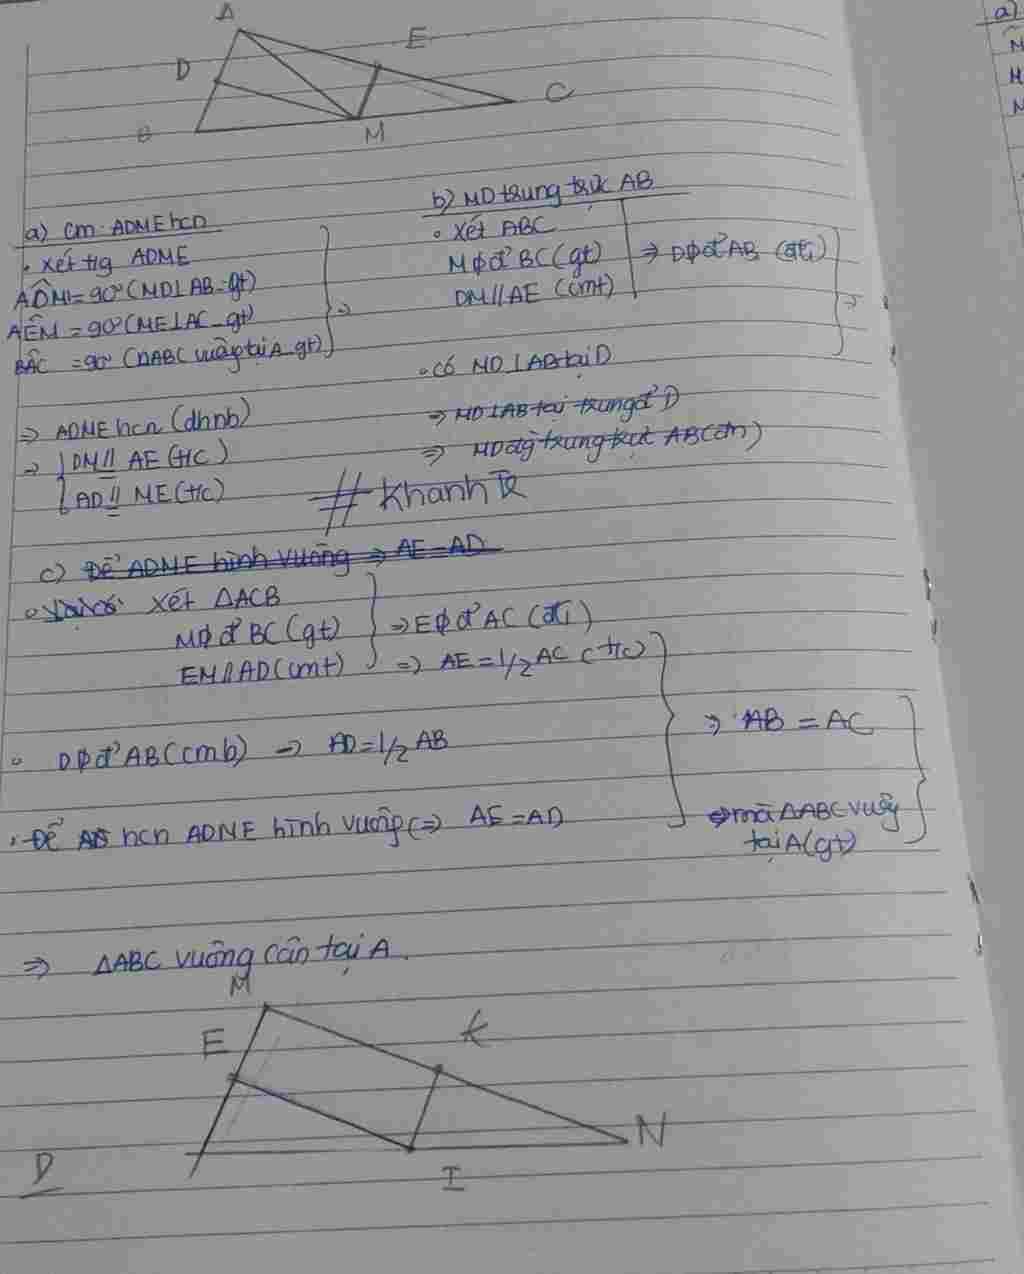 A
E
D
C
B
M
a) Cm ADME hcn
• Xét t/g ADME
ADM = 90° (MD⊥AB - gt)
AEM = 90° (ME⊥AC - gt)
BAC = 90° (△ABC vuông tại A - gt)
⇒
⇒ ADME hcn (dhnb)
⇒ DM // AE (t/c)
AD // ME (t/c)
b) MD trung trực AB
• Xét ABC
M là tđ BC (gt)
DM // AE (cmt)
⇒ D là tđ AB (đl)
⇒
• Có MD ⊥ AB tại D
⇒ MD ⊥ AB tại trung đ' D
⇒ MD đg trung trực AB (đn)
# Khanh
c) Để ADME hình vuông ⇒ AE = AD
• Xét △ACB
M là tđ BC (gt)
EM // AD (cmt)
⇒ E là tđ AC (đl)
⇒ AE = 1/2 AC (t/c)
• D là tđ AB (cmb) ⇒ AD = 1/2 AB
• Để hcn ADME hình vuông ⇔ AE = AD
⇒ AB = AC
mà △ABC vuông
tại A (gt)
⇒ △ABC vuông cân tại A.
M
E
K
N
D
I
a)
M
H
M